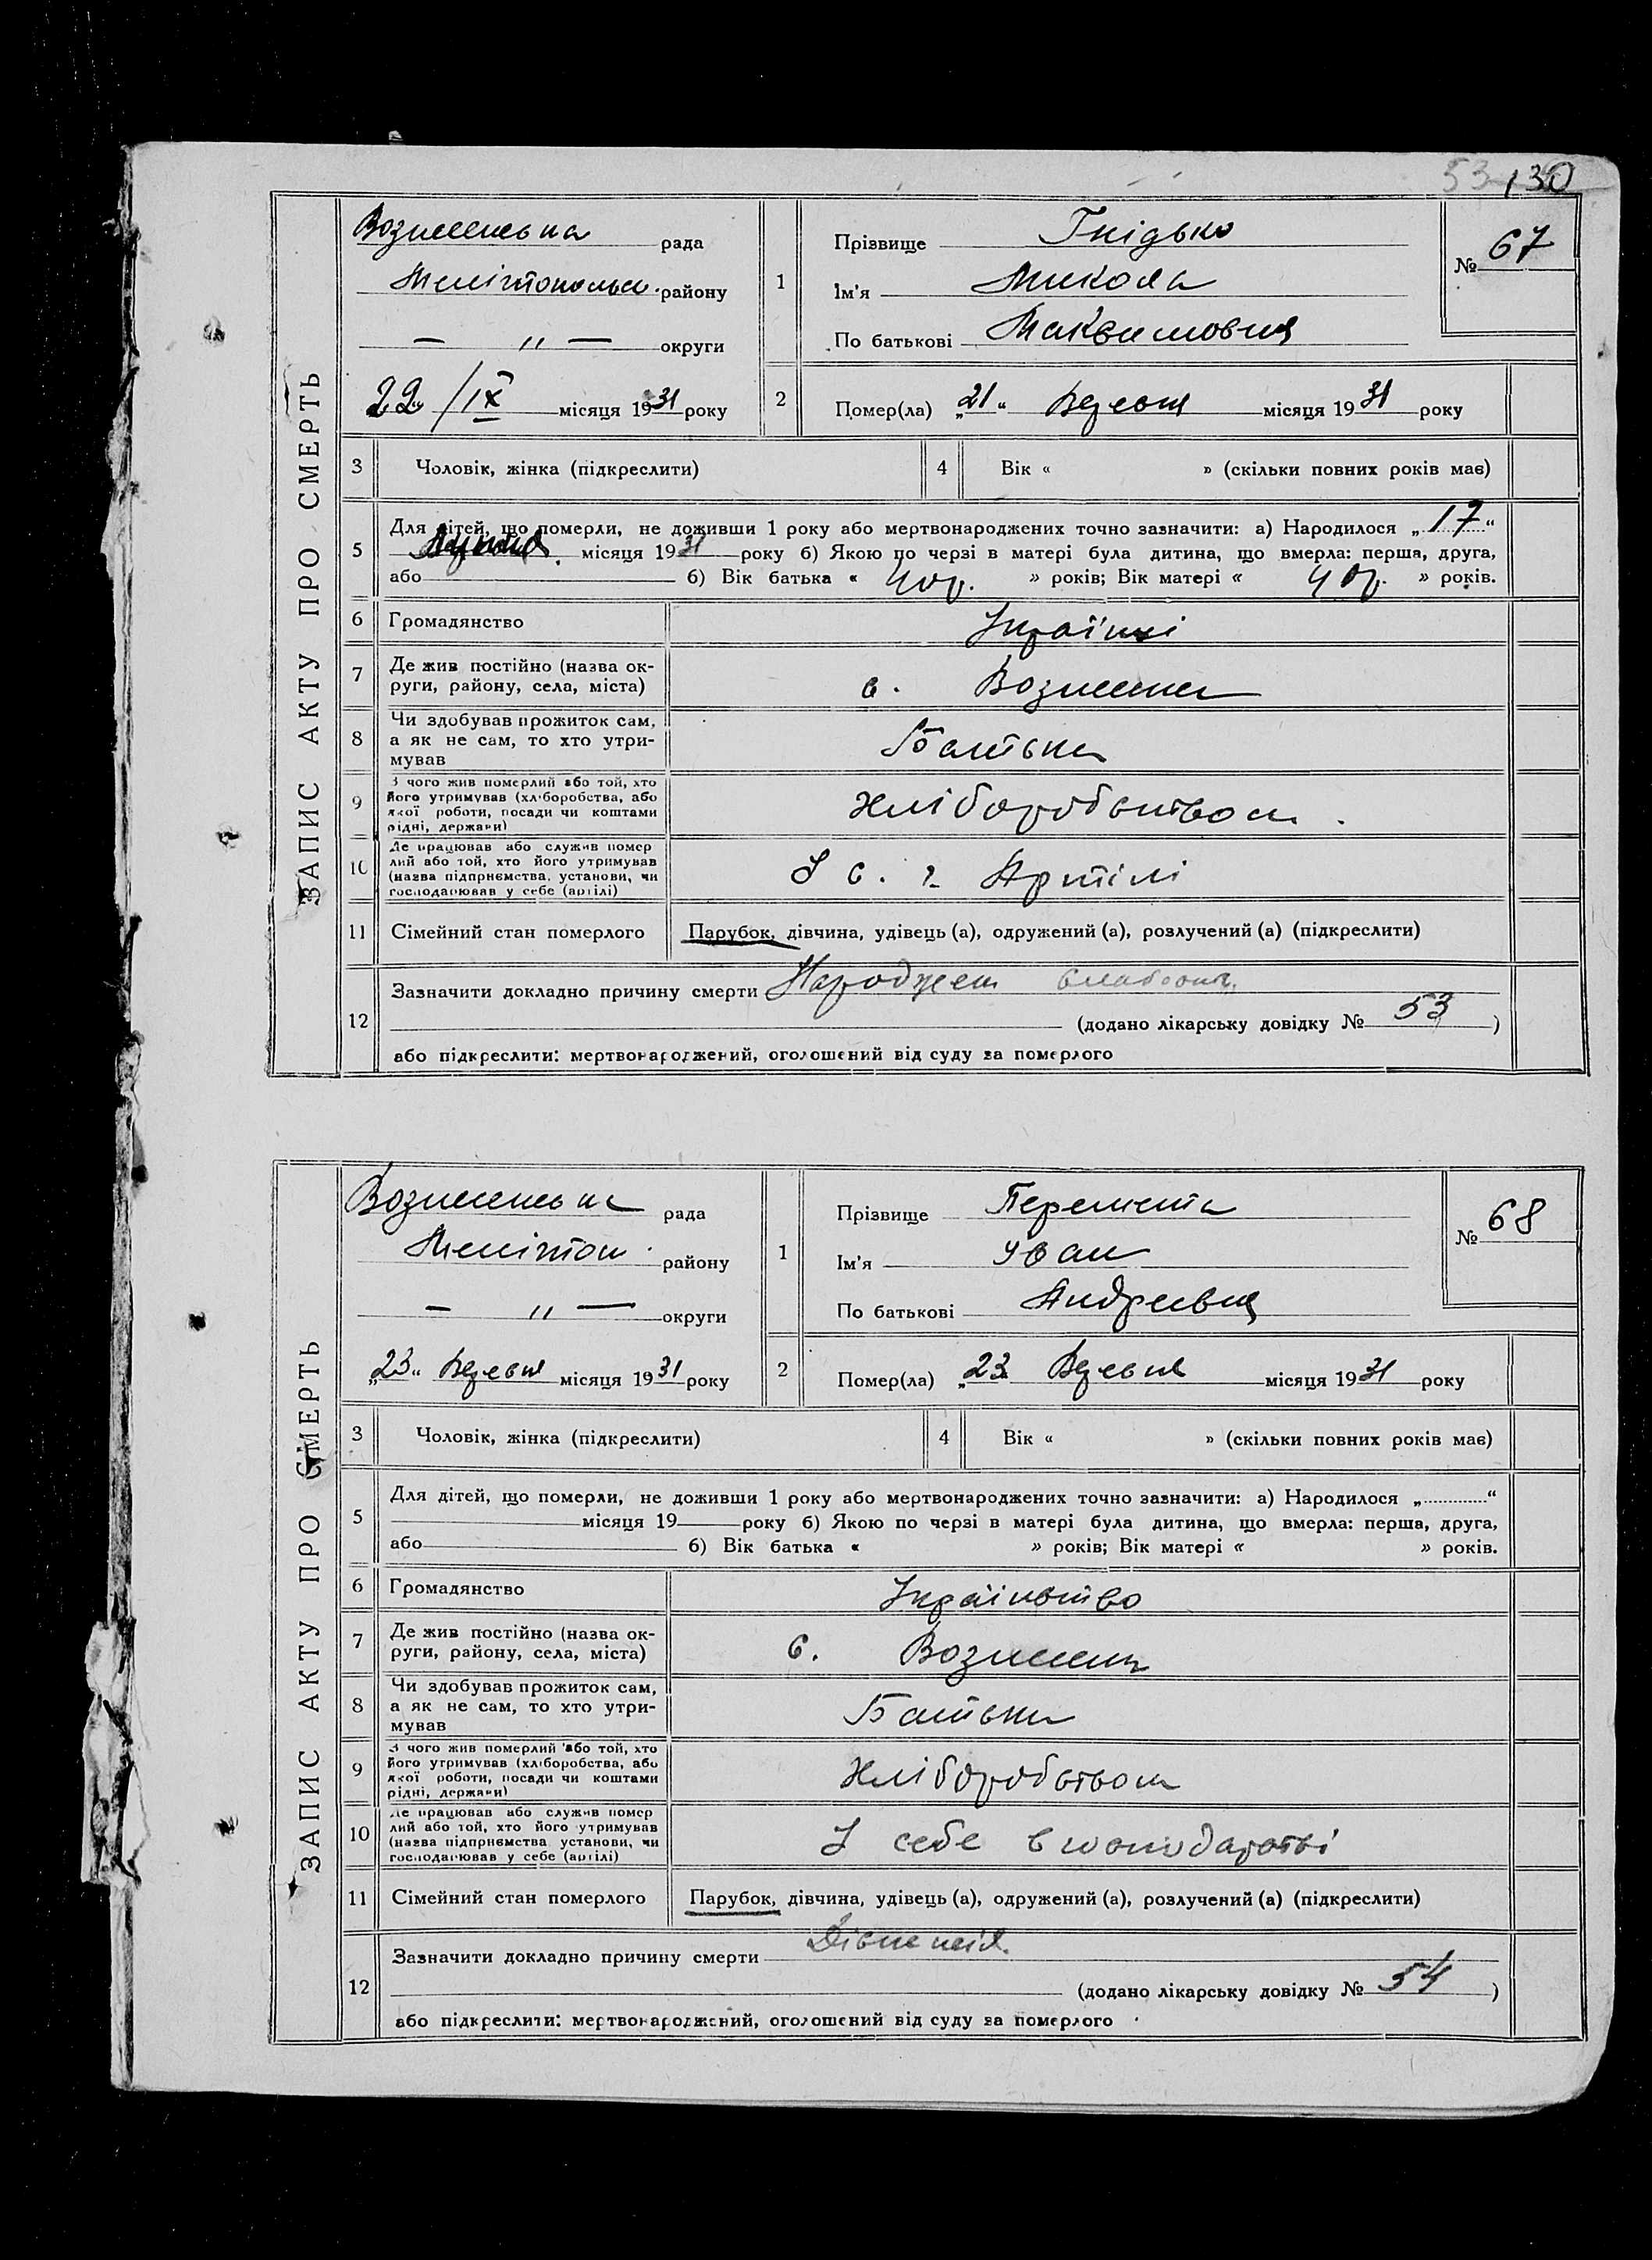 53 130
ЗАПИС АКТУ ПРО СМЕРТЬ
Вознесенська рада
Мелітопольск. району
— „ — округи
22/IX місяця 1931 року
1
Прізвище Гнідько
Ім'я Микола
По батькові Максимович
№ 67
2
Помер(ла) „21“ Вересня місяця 1931 року
3 Чоловік, жінка (підкреслити)
4 Вік « » (скільки повних років має)
5 Для дітей, що померли, не доживши 1 року або мертвонароджених точно зазначити: а) Народилося „17“
місяця 1931 року б) Якою по черзі в матері була дитина, що вмерла: перша, друга,
або б) Вік батька « 40р. » років; Вік матері « 40р. » років.
6 Громадянство
7 Де жив постійно (назва ок-
руги, району, села, міста)
с. Вознесенка
8 Чи здобував прожиток сам,
а як не сам, то хто утри-
мував
Батько
9 З чого жив померлий або той, хто
його утримував (хліборобства, або
якої роботи, посади чи коштами
рідні, держави)
Хліборобством.
10 Де працював або служив помер
лий або той, хто його утримував
(назва підприємства, установи, чи
господарював у себе (артілі)
У с. г. Артілі
11 Сімейний стан померлого Парубок, дівчина, удівець (а), одружений (а), розлучений (а) (підкреслити)
12 Зазначити докладно причину смерти
(додано лікарську довідку № 53)
або підкреслити: мертвонароджений, оголошений від суду за померлого
ЗАПИС АКТУ ПРО СМЕРТЬ
Вознесенська рада
Мелітоп. району
— „ — округи
„23“ Вересня місяця 1931 року
1
Прізвище
Ім'я Іван
По батькові Андреєвич
№ 68
2
Помер(ла) „23 Вересня місяця 1931 року
3 Чоловік, жінка (підкреслити)
4 Вік « » (скільки повних років має)
5 Для дітей, що померли, не доживши 1 року або мертвонароджених точно зазначити: а) Народилося „ “
місяця 19 року б) Якою по черзі в матері була дитина, що вмерла: перша, друга,
або б) Вік батька « » років; Вік матері « » років.
6 Громадянство Українство
7 Де жив постійно (назва ок-
руги, району, села, міста)
с. Вознесенка
8 Чи здобував прожиток сам,
а як не сам, то хто утри-
мував
Батько
9 З чого жив померлий або той, хто
його утримував (хліборобства, або
якої роботи, посади чи коштами
рідні, держави)
Хліборобством
10 Де працював або служив помер
лий або той, хто його утримував
(назва підприємства установи, чи
господарював у себе (артілі)
У себе в господарстві
11 Сімейний стан померлого Парубок, дівчина, удівець (а), одружений (а), розлучений (а) (підкреслити)
12 Зазначити докладно причину смерти
(додано лікарську довідку № 54)
або підкреслити: мертвонароджений, оголошений від суду за померлого